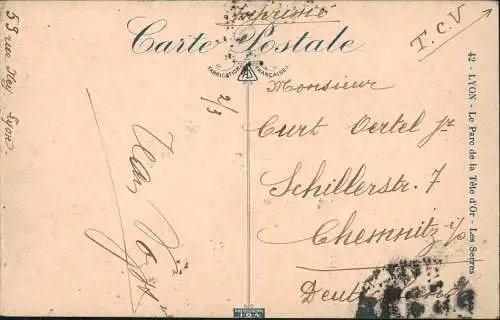 Imprimé
T. C. V
Carte Postale
FABRICATION FRANÇAISE
53 rue Ney Lyon.
2/3
Monsieur
Curt Oertel jr
Schillerstr. 7
Chemnitz i/s
42 - LYON - Le Parc de la Tête d'Or - Les Serres